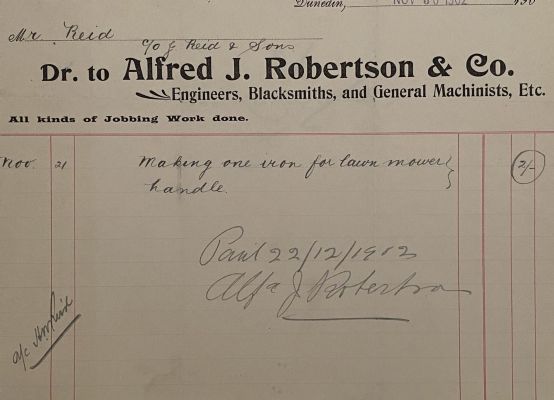 Dunedin, NOV 30 1902 190
Mr. Reid
c/o J Reid & Sons
Dr. to Alfred J. Robertson & Co.
Engineers, Blacksmiths, and General Machinists, Etc.
All kinds of Jobbing Work done.
Nov. 21 Making one iron for lawn mower 2/-
handle.
Paid 22/12/1902
Alf J Robertson
a/c